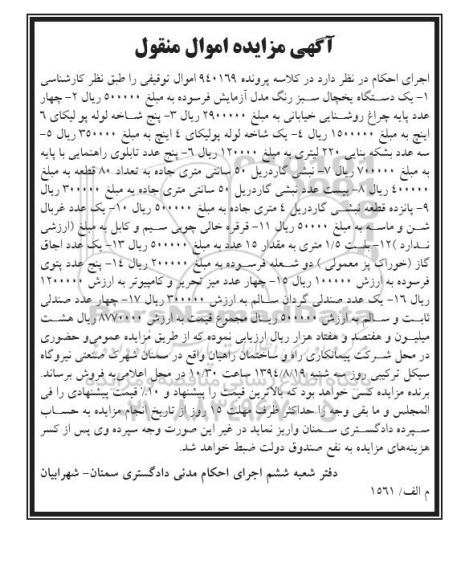 آگهی مزایده اموال منقول
اجرای احکام در نظر دارد در کلاسه پرونده ۹۴۰۱۶۹ اموال توقیفی را طبق نظر کارشناسی
۱- یک دستگاه یخچال سبز رنگ مدل آزمایش فرسوده به مبلغ ۵۰۰۰۰۰ ریال ۲- چهار
عدد پایه چراغ روشنایی خیابانی به مبلغ ۲۹۰۰۰۰۰ ریال ۳- پنج شاخه لوله پو لیکای ۶
اینچ به مبلغ ۱۵۰۰۰۰۰ ریال ۴- یک شاخه لوله پولیکای ۴ اینچ به مبلغ ۳۵۰۰۰۰ ریال ۵-
سه عدد بشکه بنایی ۲۲۰ لیتری به مبلغ ۱۲۰۰۰۰ ریال ۶- پنج عدد تابلوی راهنمایی با پایه
به مبلغ ۷۰۰۰۰۰ ریال ۷- نبشی گاردریل ۵۰ سانتی متری جاده به تعداد ۸۰ قطعه به مبلغ
۴۰۰۰۰۰ ریال ۸- بیست عدد نبشی گاردریل ۵۰ سانتی متری جاده به مبلغ ۳۰۰۰۰۰ ریال
۹- پانزده قطعه نبشی گاردریل ۴ متری جاده به مبلغ ۵۰۰۰۰۰ ریال ۱۰- یک عدد غربال
شن و ماسه به مبلغ ۵۰۰۰۰ ریال ۱۱- قرقره خالی چوبی سیم و کابل به مبلغ (ارزشی
ندارد) ۱۲- بلست ۱/۵ متری به مقدار ۱۵ عدد به مبلغ ۵۰۰۰۰۰ ریال ۱۳- یک عدد اجاق
گاز (خوراک پز معمولی) دو شعله فرسوده به مبلغ ۲۰۰۰۰۰ ریال ۱۴- پنج عدد پتوی
فرسوده به ارزش ۱۰۰۰۰۰ ریال ۱۵- چهار عدد میز تحریر و کامپیوتر به ارزش ۱۲۰۰۰۰۰
ریال ۱۶- یک عدد صندلی گردان سالم به ارزش ۳۰۰۰۰۰ ریال ۱۷- چهار عدد صندلی
ثابت و سالم به ارزش ۵۰۰۰۰۰ ریال مجموع قیمت به ارزش ۸۷۷۰۰۰۰ ریال هشت
میلیون و هفتصد و هفتاد هزار ریال ارزیابی نموده که از طریق مزایده عمومی و حضوری
در محل شرکت پیمانکاری راه و ساختمان راهیان واقع در سمنان شهرک صنعتی نیروگاه
سیکل ترکیبی روز سه شنبه ۱۳۹۴/۸/۱۹ ساعت ۱۰/۳۰ در محل اعلامی به فروش برساند.
برنده مزایده کسی خواهد بود که بالاترین قیمت را پیشنهاد و ۱۰٪ قیمت پیشنهادی را فی
المجلس و ما بقی وجه را حداکثر ظرف مهلت ۱۵ روز از تاریخ انجام مزایده به حساب
سپرده دادگستری سمنان واریز نماید در غیر این صورت وجه سپرده وی پس از کسر
هزینه‌های مزایده به نفع صندوق دولت ضبط خواهد شد.
دفتر شعبه ششم اجرای احکام مدنی دادگستری سمنان- شهرابیان
م الف/ ۱۵۶۱